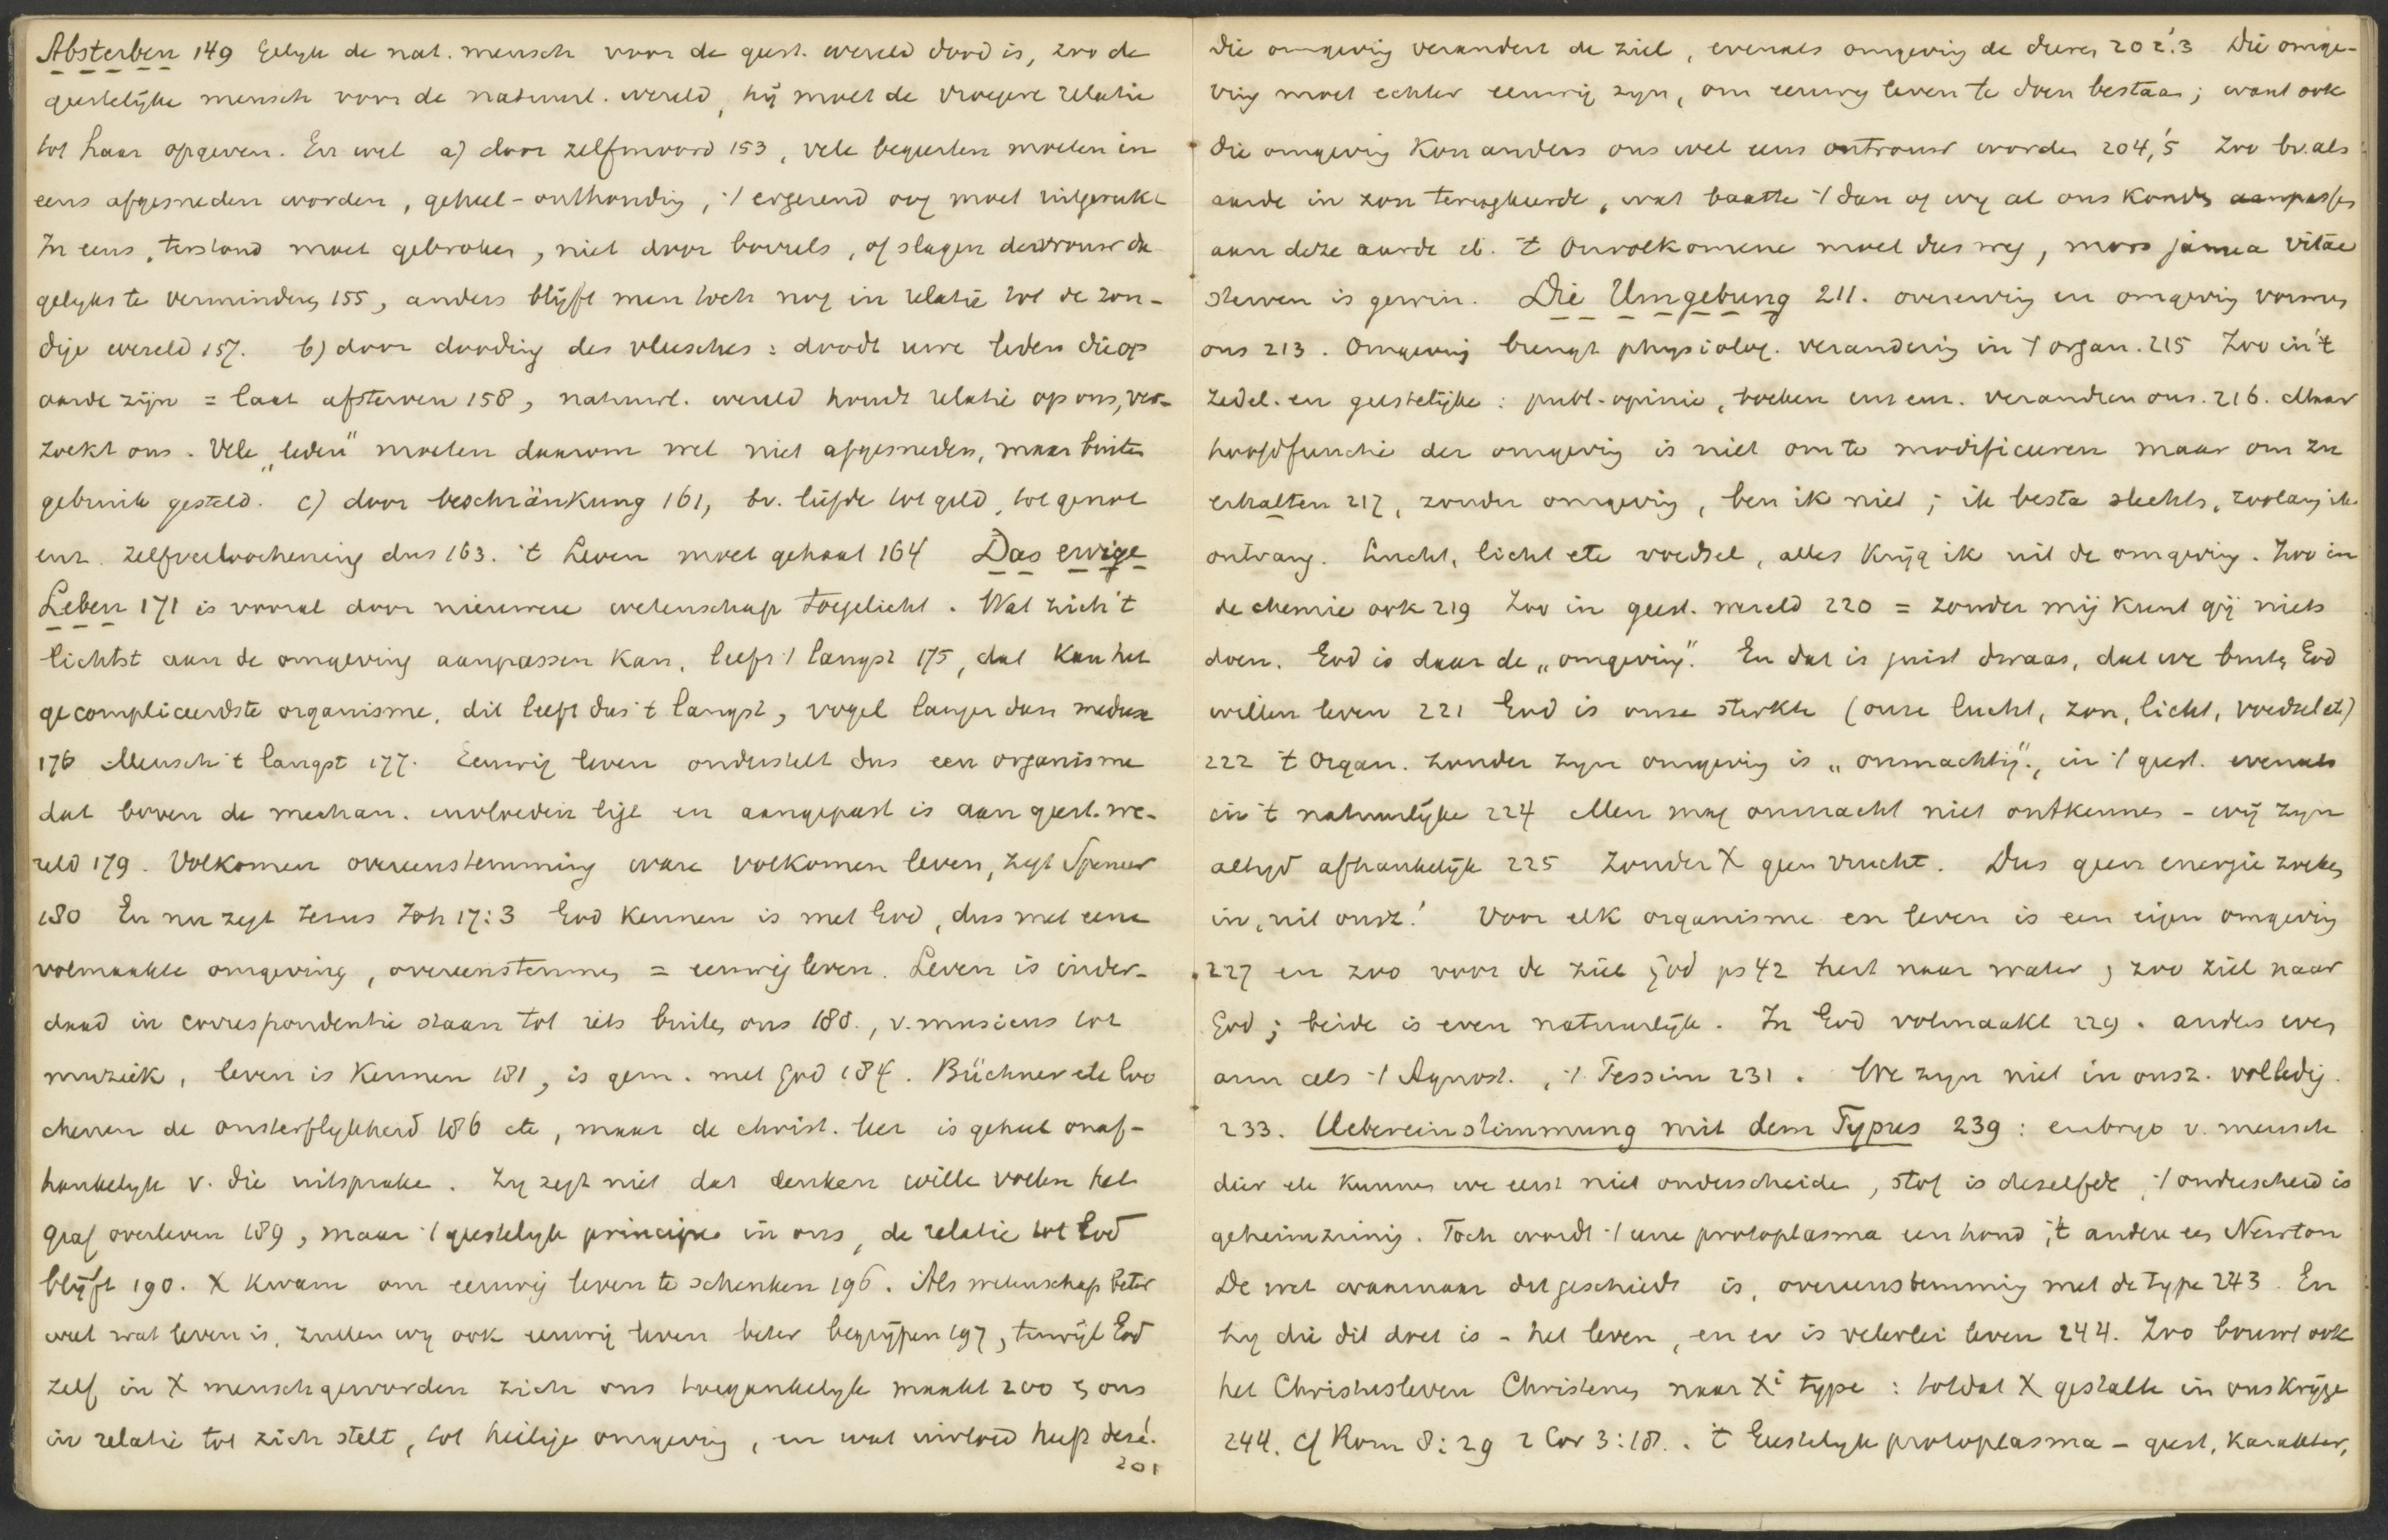 Absterben 149 Gelyk de nat. mensch voor de geest. wereld dood is, zoo de
geestelijke mensch voor de natuurl. wereld, hij moet de vroegere relatie
tot haar opgeven. En wel a) door zelfmoord 153, vele begeerten moeten in
eens afgesneden worden, geheel-onthouding, 't ergerend oog moet uitgerukt
In eens, terstond moet gebroken, niet door borrels, of slagen der vrouw da
gelyks te verminderen 155, anders blijft men toch nog in relatie tot de zon-
dige wereld 157. b) door dooding des vleesches: doodt uwe leden die op
aarde zijn = laat afsterven 158, natuurl. wereld houdt relatie op ons, ver-
zoekt ons. Vele „leden" moeten daarom wel niet afgesneden, maar buiten
gebruik gesteld. c) door beschränkung 161, bv. liefde tot geld, tot genot
enz. zelfverloochening dus 163. 't Leven moet gehaat 164 Das ewige
Leben 171 is vooral door nieuwere wetenschap toegelicht. Wat zich 't
lichtst aan de omgeving aanpassen kan, leeft 't langst 175, dat kan het
gecompliceerdste organisme, dit leeft dus 't langst, vogel langer dan meduse
176 Mensch 't langst 177. Eeuwig leven onderstelt dus een organisme
dat boven de mechan. invloeden ligt en aangepast is aan geest. we-
reld 179. Volkomen overeenstemming ware volkomen leven, zegt Spencer
180 En nu zegt Jezus Joh 17:3 God kennen is met God, dus met eene
volmaakte omgeving, overeenstemmen = eeuwig leven. Leven is inder-
daad in correspondentie staan tot iets buiten ons 180., v. musicus tot
muziek, leven is kennen 181, is gem. met God 184. Büchner etc loo
chenen de onsterflykheid 186 etc, maar de christ. leer is geheel onaf-
hankelyk v. die uitspraken. Zy zegt niet dat denken wille voelen het
graf overleven 189, maar 't geestelyk principe in ons, de relatie tot God
blijft 190. X kwam om eeuwig leven te schenken 196. Als wetenschap beter
weet wat leven is, zullen wy ook eeuwig leven beter begrijpen 197, terwijl God
zelf in X mensch geworden zich ons toegankelyk maakt 200 & ons
in relatie tot zich stelt, tot heilige omgeving, en wat invloed heeft deze!
201
Die omgeving verandert de ziel, evenals omgeving de dieren 202.'3 Die omge-
ving moet echter eeuwig zyn, om eeuwig leven te doen bestaan; want ook
die omgeving kon anders ons wel eens ontrouw worden 204,'5 Zoo bv. als
aarde in zon terugkeerde, wat baatte 't dan of wy al ons konden aanpassen
aan deze aarde etc. 't Onvolkomene moet dus weg, mors janua vitae
sterven is gewin. Die Umgebung 211. overerving en omgeving vormen
ons 213. Omgeving brengt physiolog. verandering in 't organ. 215 Zoo in 't
zedel. en geestelijke: publ-opinie, boeken enz enz. veranderen ons. 216. Maar
hoofdfunctie der omgeving is niet om te modificeeren maar om zu
erhalten 217, zonder omgeving, ben ik niet; ik besta slechts, zoolang ik
ontvang. Lucht, licht etc voedsel, alles krijg ik uit de omgeving. Zoo in
de chemie ook 219 Zoo in geest. wereld 220 = zonder mij kunt gij niets
doen. God is daar de „omgeving". En dat is juist dwaas, dat we buiten God
willen leven 221 God is onze sterkte (onze lucht, zon, licht, voedsel etc)
222 't Organ. zonder zyn omgeving is „onmachtig", in 't geest. evenals
in 't natuurlijke 224 Men mag onmacht niet ontkennen - wij zyn
altyd afhankelijk 225 Zonder X geen vrucht. Dus geen energie zoeken
in, uit onsz.! Voor elk organisme en leven is een eigen omgeving
227 en zoo voor de ziel God ps 42 hert naar water; zoo ziel naar
God; beide is even natuurlijk. In God volmaakt 229. anders even
arm als 't Agnost., 't Pessim 231. We zyn niet in onsz. volledig.
233. Uebereinstimmung mit dem Typus 239: embryo v. mensch
dier etc kunnen we eerst niet onderscheiden, stof is dezelfde, 't onderscheid is
geheimzinnig. Toch wordt 't eene protoplasma een hond, 't andere een Newton
De wet waarnaar dit geschiedt is, overeenstemming met de type 243. En
hy die dit doet is - het leven, en er is velerlei leven 244. Zoo bouwt ook
het Christusleven Christenen naar Xi type: totdat X gestalte in ons krijge
244. cf Rom 8:29 2 Cor 3:18. 't Geestelyk protoplasma - geest, karakter,